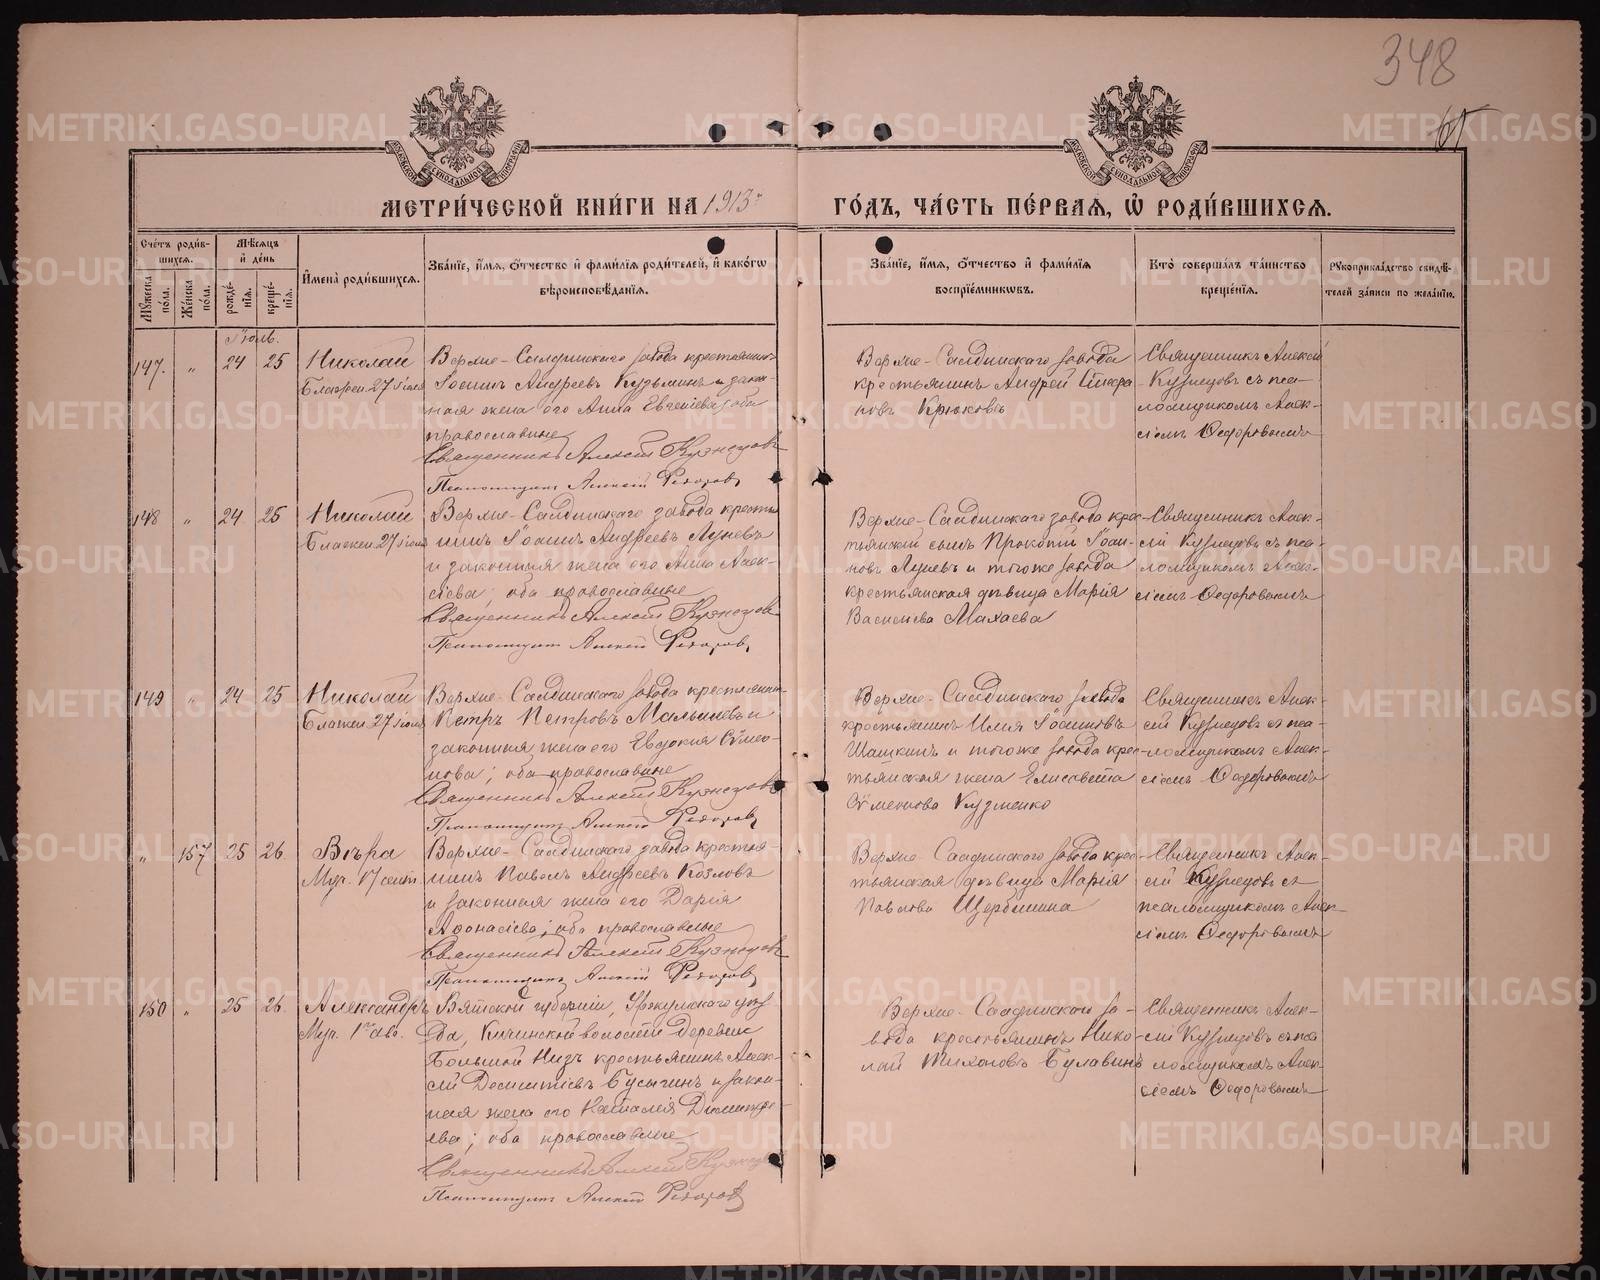 348
65
МЕТРИ́ЧЕСКОЙ КНИ́ГИ НА 1913 г
ГО́ДЪ, ЧА́СТЬ ПЕ́РВАЯ, Ѡ РОДИ́ВШИХСЯ.
Сче́тъ роди́в-
шихся.
Мꙋ́жеска по́ла.
Же́нска по́ла.
Мѣ́сяцъ
и҆ де́нь
рожде́нїя.
креще́нїя.
И҆мена̀ роди́вшихся.
Зва́нїе, и҆́мя, ѻ҆́тчество и҆ фами́лїя роди́телей, и҆ како́гѡ
вѣроисповѣ́данїя.
Зва́нїе, и҆́мя, ѻ҆́тчество и҆ фами́лїя
воспрїе́мникѡвъ.
Кто̀ соверша́лъ та́инство
креще́нїя.
Рꙋкоприкла́дство свидѣ́-
телей за́писи по жела́нїю.
Іюль.
147. " 24 25
Николай
Блажен 27 іюля
Верхне-Салдинскаго завода крестьянинъ
Іоаннъ Андреевъ Кузьминъ и закон-
ная жена его Анна Евгеніева; оба
православные
Священникъ Алексій Кузнецовъ
Псаломщикъ Алексій Федоровъ
Верхне-Салдинскаго завода
крестьянинъ Андрей Стефа
новъ Крюковъ
Священникъ Алексій
Кузнецовъ съ пса-
ломщикомъ Алек-
сіемъ Ѳедоровымъ
148 " 24 25
Николай
Блажен 27 іюля
Верхне-Салдинскаго завода кресть
нинъ Іоаннъ Андреевъ Луневъ
и законная жена его Анна Алек-
сіева; оба православные
Священникъ Алексій Кузнецовъ
Псаломщикъ Алексій Федоровъ
Верхне-Салдинскаго завода крес-
тьянскій сынъ Прокопій Іоан-
новъ Луневъ и тогоже завода
крестьянская дѣвица Марія
Василіева Махаева
Священникъ Алек-
сій Кузнецовъ съ пса-
ломщикомъ Алек-
сіемъ Ѳедоровымъ
149 " 24 25
Николай
Блажен 27 іюля
Верхне-Салдинскаго завода крестьянинъ
Петръ Петровъ Малышевъ и
законная жена его Евдокия Сѵмео-
нова; оба православные
Священникъ Алексій Кузнецовъ
Псаломщикъ Алексій Федоровъ
Верхне-Салдинскаго завода
крестьянинъ Илія Іоанновъ
Шашкинъ и тогоже завода крес-
тьянская жена Елисавета
Сѵмеонова Кузменко
Священникъ Алек-
сій Кузнецовъ съ пса-
ломщикомъ Алек-
сіемъ Ѳедоровымъ
" 157 25 26
Вѣра
Муч. 17 сент.
Верхне-Салдинскаго завода крестья-
нинъ Павелъ Андреевъ Козловъ
и законная жена его Дарія
Аѳонасіева; оба православные
Священникъ Алексій Кузнецовъ
Псаломщикъ Алексій Федоровъ
Верхне-Салдинскаго завода крес-
тьянская дѣвица Марія
Павлова Щербинина
Священникъ Алек-
сій Кузнецовъ съ
псаломщикомъ Алек-
сіемъ Ѳедоровымъ
150 " 25 26
Александръ
Муч. 1го авг.
Вятской губерніи, Уржумскаго уѣз
да, Кичинской волости деревни
Большой Низъ крестьянинъ Алек-
сій Дементіевъ Бусыгинъ и закон-
ная жена его Наталія Димитрі-
ева; оба православные
Священникъ Алексій Кузнецовъ
Псаломщикъ Алексій Федоровъ
Верхне-Салдинскаго за-
вода крестьянинъ Нико-
лай Тихоновъ Булавинъ
Священникъ Алек-
сій Кузнецовъ съ пса
ломщикомъ Алек-
сіемъ Ѳедоровымъ